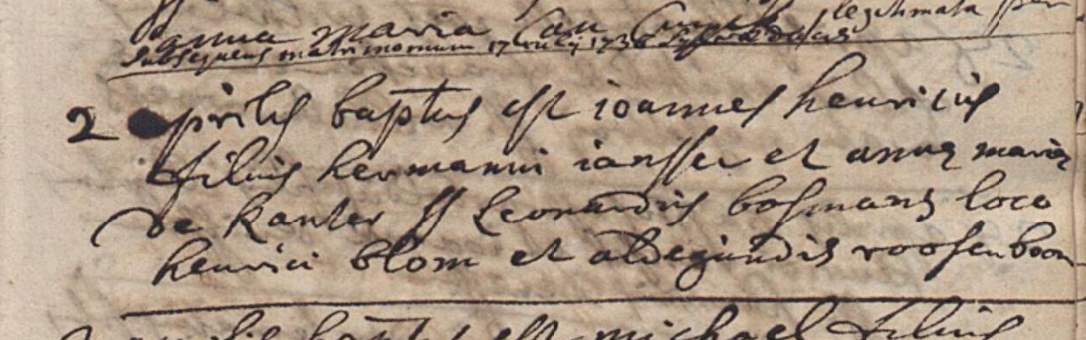 anna maria legitimata per
subsequens matrimonium 17 1736
2 aprilis baptus est ioannes henricus
filius hermanni iansser et annæ mariæ
de kanter ss Leonardus bosmans loco
henrici blom et aldegundis roosenboom
aprilis baptus est michael filius